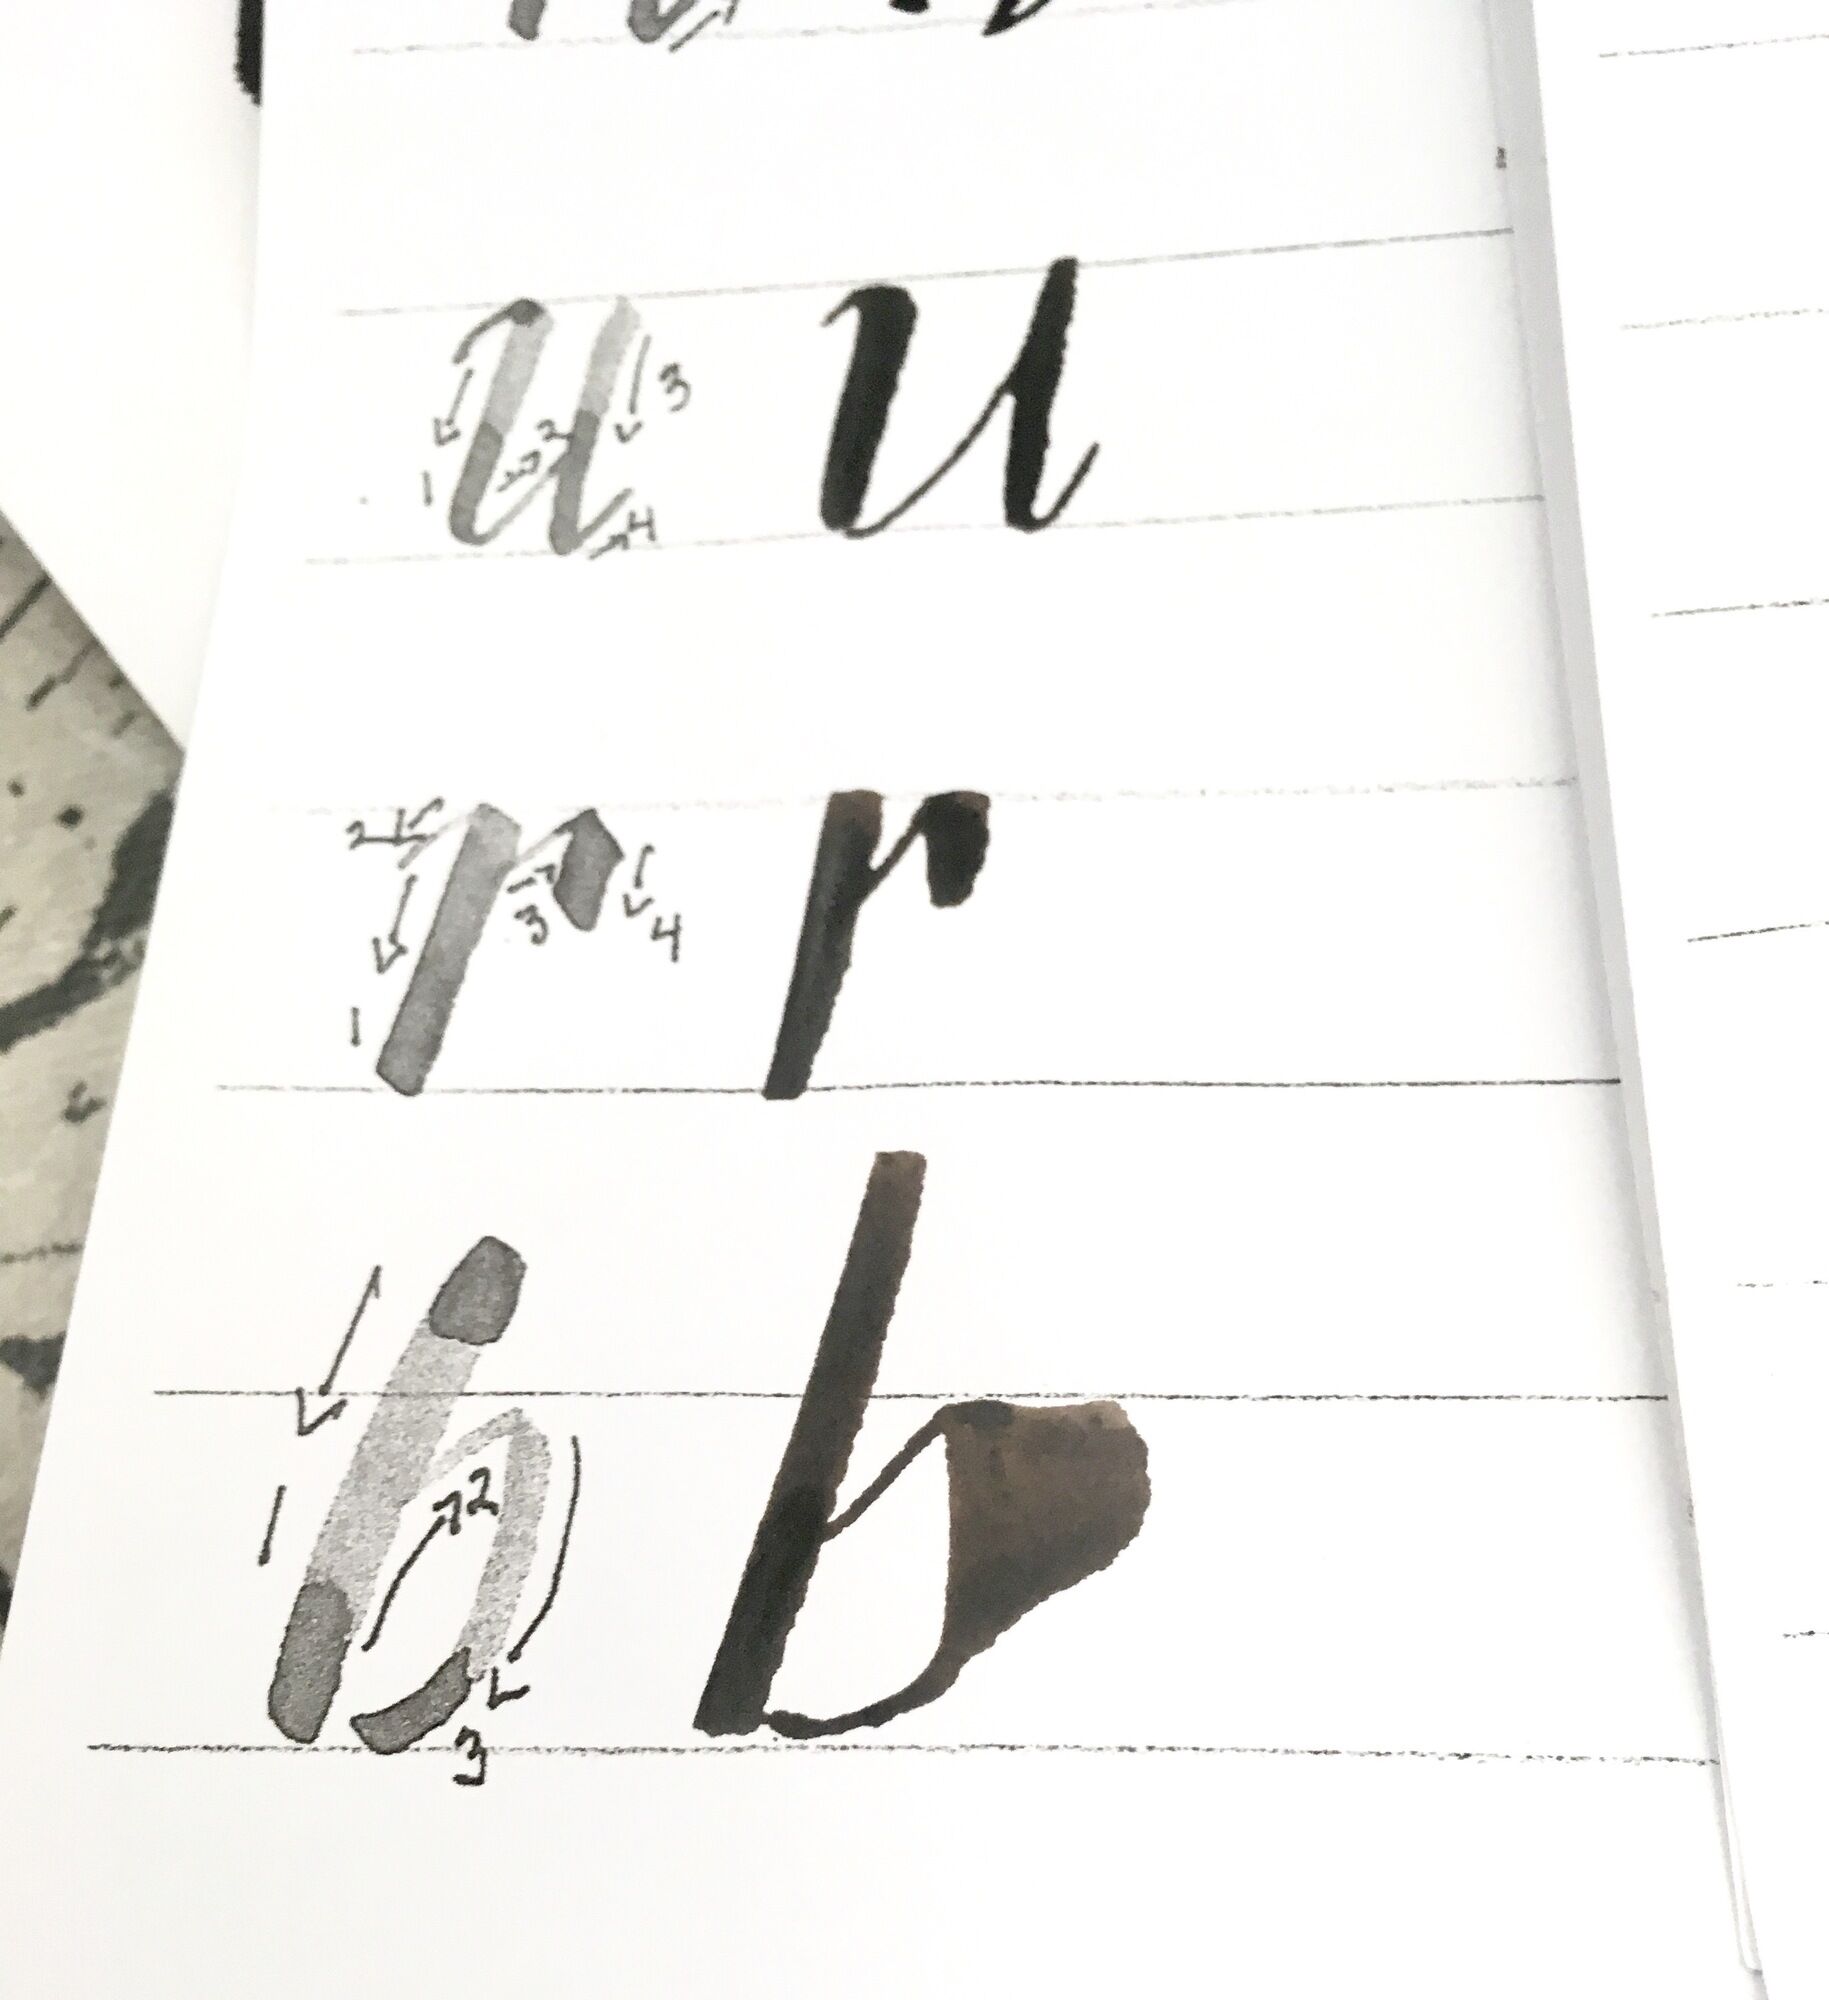 u 1 2 3 4 u
r 1 2 3 4 r
b 1 2 3 b